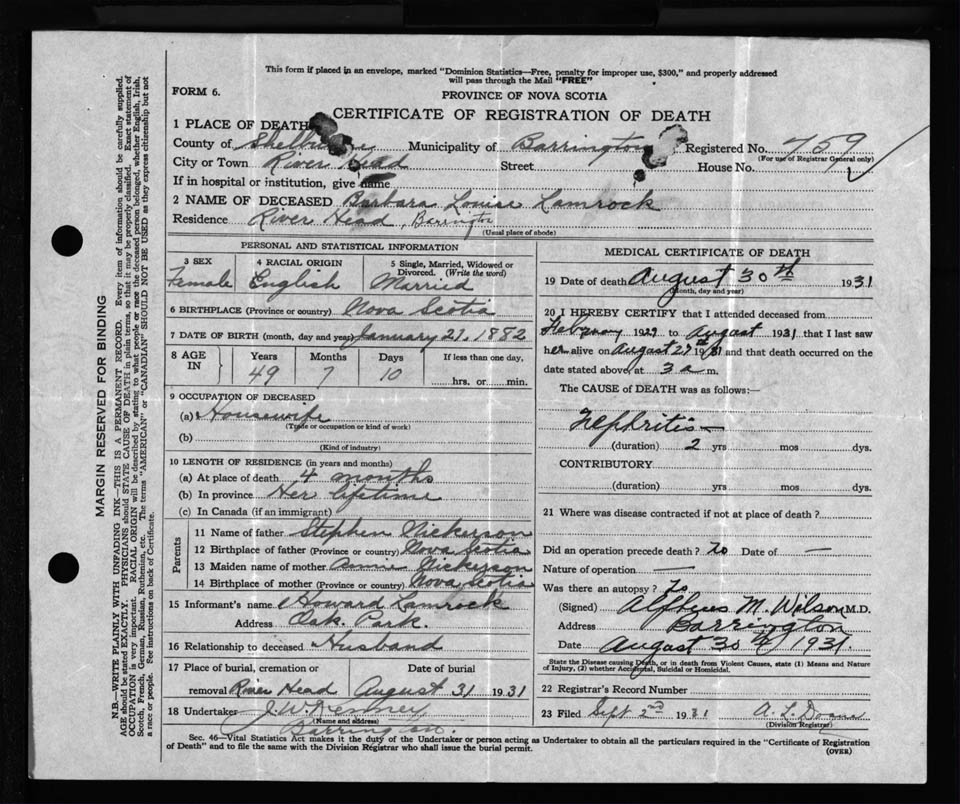 This form if placed in an envelope, marked "Dominion Statistics—Free, penalty for improper use, $300," and properly addressed
will pass through the Mail "FREE"
FORM 6.
PROVINCE OF NOVA SCOTIA
CERTIFICATE OF REGISTRATION OF DEATH
1 PLACE OF DEATH
County of Shelburne Municipality of Barrington Registered No. 759
(For use of Registrar General only)
City or Town River Head Street House No.
If in hospital or institution, give name
2 NAME OF DECEASED Barbara Louise Lamrock
Residence River Head, Barrington
(Usual place of abode)
PERSONAL AND STATISTICAL INFORMATION
3 SEX 4 RACIAL ORIGIN 5 Single, Married, Widowed or
Divorced. (Write the word)
Female English Married
6 BIRTHPLACE (Province or country) Nova Scotia
7 DATE OF BIRTH (month, day and year) January 21, 1882
8 AGE IN Years Months Days If less than one day,
49 7 10 hrs. or min.
9 OCCUPATION OF DECEASED
(a) Housewife
(Trade or occupation or kind of work)
(b)
(Kind of industry)
10 LENGTH OF RESIDENCE (in years and months)
(a) At place of death 4 months
(b) In province Her lifetime
(c) In Canada (if an immigrant)
Parents
11 Name of father Stephen Nickerson
12 Birthplace of father (Province or country) Nova Scotia
13 Maiden name of mother Annie Nickerson
14 Birthplace of mother (Province or country) Nova Scotia
15 Informant's name Howard Lamrock
Address Oak Park.
16 Relationship to deceased Husband
17 Place of burial, cremation or Date of burial
removal River Head August 31 1931
18 Undertaker J. W.
(Name and address)
Barrington.
MEDICAL CERTIFICATE OF DEATH
19 Date of death August 30th 1931
(Month, day and year)
20 I HEREBY CERTIFY that I attended deceased from
February 1929 to August 1931 that I last saw
her alive on August 29th 1931 and that death occurred on the
date stated above at 3 a m.
The CAUSE of DEATH was as follows:—
Nephritis —
(duration) 2 yrs mos dys.
CONTRIBUTORY
(duration) yrs mos dys.
21 Where was disease contracted if not at place of death?
Did an operation precede death? No Date of —
Nature of operation —
Was there an autopsy? No
(Signed) Alpheus M. Wilson M.D.
Address Barrington
Date August 30 1931.
State the Disease causing Death, or in death from Violent Causes, state (1) Means and Nature
of Injury, (2) whether Accidental, Suicidal or Homicidal.
22 Registrar's Record Number
23 Filed Sept 2nd 1931 A. L.
(Division Registrar)
Sec. 46—Vital Statistics Act makes it the duty of the Undertaker or person acting as Undertaker to obtain all the particulars required in the "Certificate of Registration
of Death" and to file the same with the Division Registrar who shall issue the burial permit.
(OVER)
MARGIN RESERVED FOR BINDING
N.B.—WRITE PLAINLY WITH UNFADING INK—THIS IS A PERMANENT RECORD. Every item of information should be carefully supplied.
AGE should be stated EXACTLY. PHYSICIANS should STATE CAUSE OF DEATH in plain terms, so that it may be properly classified. Exact statement of
OCCUPATION is very important. RACIAL ORIGIN will be described by stating to what people or race the deceased person belonged, whether English, Irish,
Scotch, French, German, Russian, Ruthenian, etc. The terms "AMERICAN" or "CANADIAN" SHOULD NOT BE USED as they express citizenship but not
a race or people. See instructions on back of Certificate.